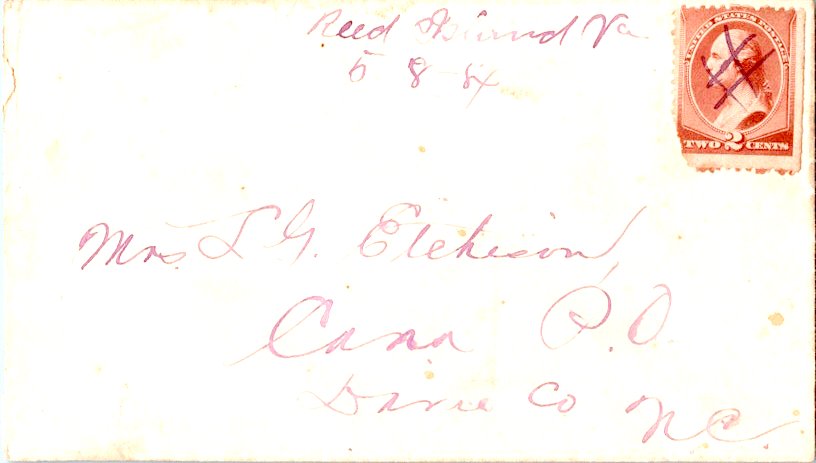 Reed Island Va.
5 8 84
UNITED STATES POSTAGE
TWO 2 CENTS
Mrs. L G. Etcheson,
Cana P.O.
Davie Co N.C.